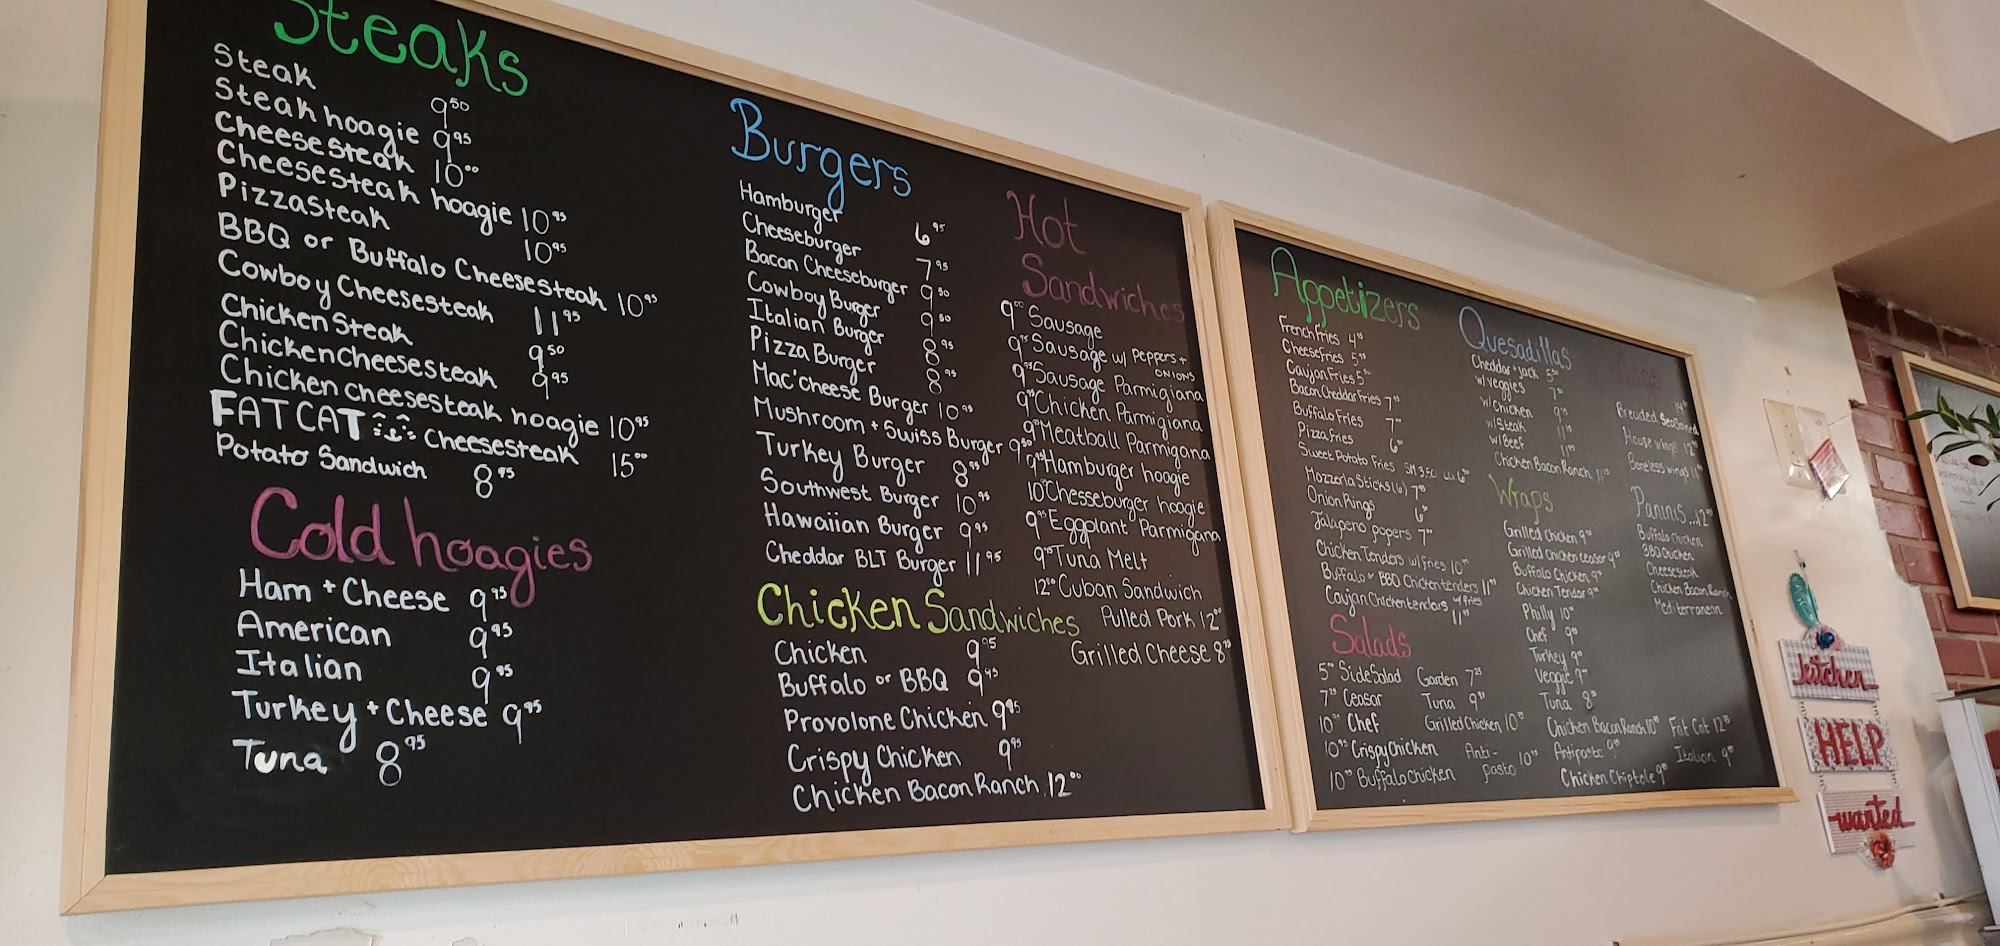 Steaks
Steak 9⁵⁰
Steak hoagie 9⁹⁵
Cheesesteak 10⁰⁰
Cheesesteak hoagie 10⁹⁵
Pizzasteak 10⁹⁵
BBQ or Buffalo Cheesesteak 10⁹⁵
Cowboy Cheesesteak 11⁹⁵
Chicken Steak 9⁵⁰
Chickencheesesteak 9⁹⁵
Chicken cheesesteak hoagie 10⁹⁵
FAT CAT Cheesesteak 15⁰⁰
Potato Sandwich 8⁹⁵
Cold hoagies
Ham + Cheese 9⁹⁵
American 9⁹⁵
Italian 9⁹⁵
Turkey + Cheese 9⁹⁵
Tuna 8⁹⁵
Burgers
Hamburger 6⁹⁵
Cheeseburger 7⁹⁵
Bacon Cheeseburger 9⁵⁰
Cowboy Burger 9⁵⁰
Italian Burger 8⁹⁵
Pizza Burger 8⁹⁵
Mac'cheese Burger 10⁹⁵
Mushroom + Swiss Burger 9⁵⁰
Turkey Burger 8⁹⁵
Southwest Burger 10⁹⁵
Hawaiian Burger 9⁹⁵
Cheddar BLT Burger 11⁹⁵
Chicken Sandwiches
Chicken 9⁹⁵
Buffalo or BBQ 9⁹⁵
Provolone Chicken 9⁹⁵
Crispy Chicken 9⁹⁵
Chicken Bacon Ranch 12⁰⁰
Hot
Sandwiches
Sausage
Sausage w/ Peppers +
onions
Sausage Parmigiana
Chicken Parmigiana
Meatball Parmigana
Hamburger hoagie
Chesseburger hoogie
Eggplant Parmigana
Tuna Melt
Cuban Sandwich
Pulled Pork
Grilled Cheese
Appetizers
French Fries
Cheese Fries
Caujan Fries
Bacon Cheddar Fries
Buffalo Fries
Pizza Fries
Sweet Potato Fries
Mozzerla Sticks (6)
Onion Rings
Jalapeno popers
Chicken Tenders w/ fries
Buffalo or BBQ Chickentenders
Caujan Chickentenders w/ fries
Salads
Side Salad
Ceasar
Chef
Crispy Chicken
Buffalo Chicken
Garden
Tuna
Grilled Chicken
Anti-
pasto
Quesadillas
Cheddar + jack
w/ veggies
w/ Chicken
w/ Steak
w/ Beef
Chicken Bacon Ranch
Wraps
Grilled Chicken
Grilled Chicken Ceasar
Buffalo Chicken
Chicken Tender
Philly
Chef
Turkey
Veggie
Tuna
Chicken Bacon Ranch
Antipasto
Chicken Chiptole
Fat Cat
Italian
Breaded Seasoned
House wings
Boneless wings
Paninis...12
Buffalo Chicken
BBQ Chicken
Cheesesteak
Chicken Bacon Ranch
Mediterranean
kitchen
HELP
wanted